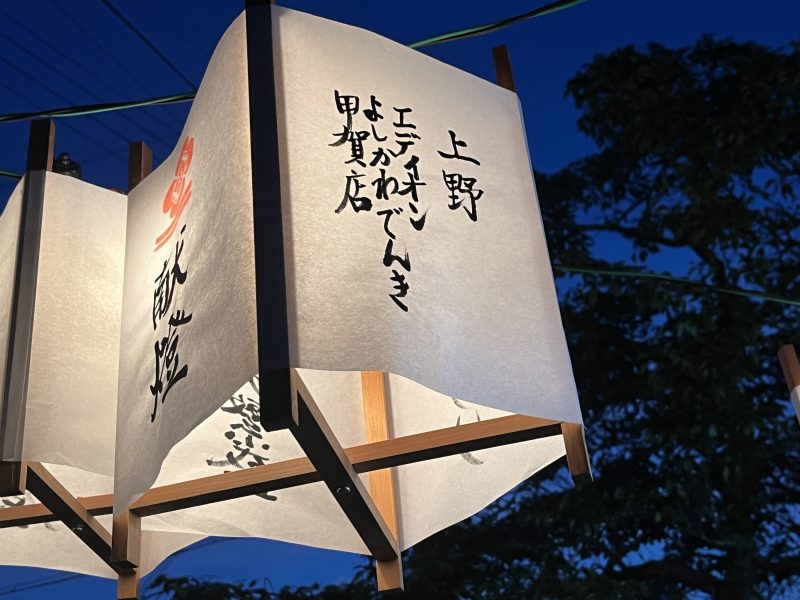 上野
エディオン
よしかわでんき
甲賀店
献燈